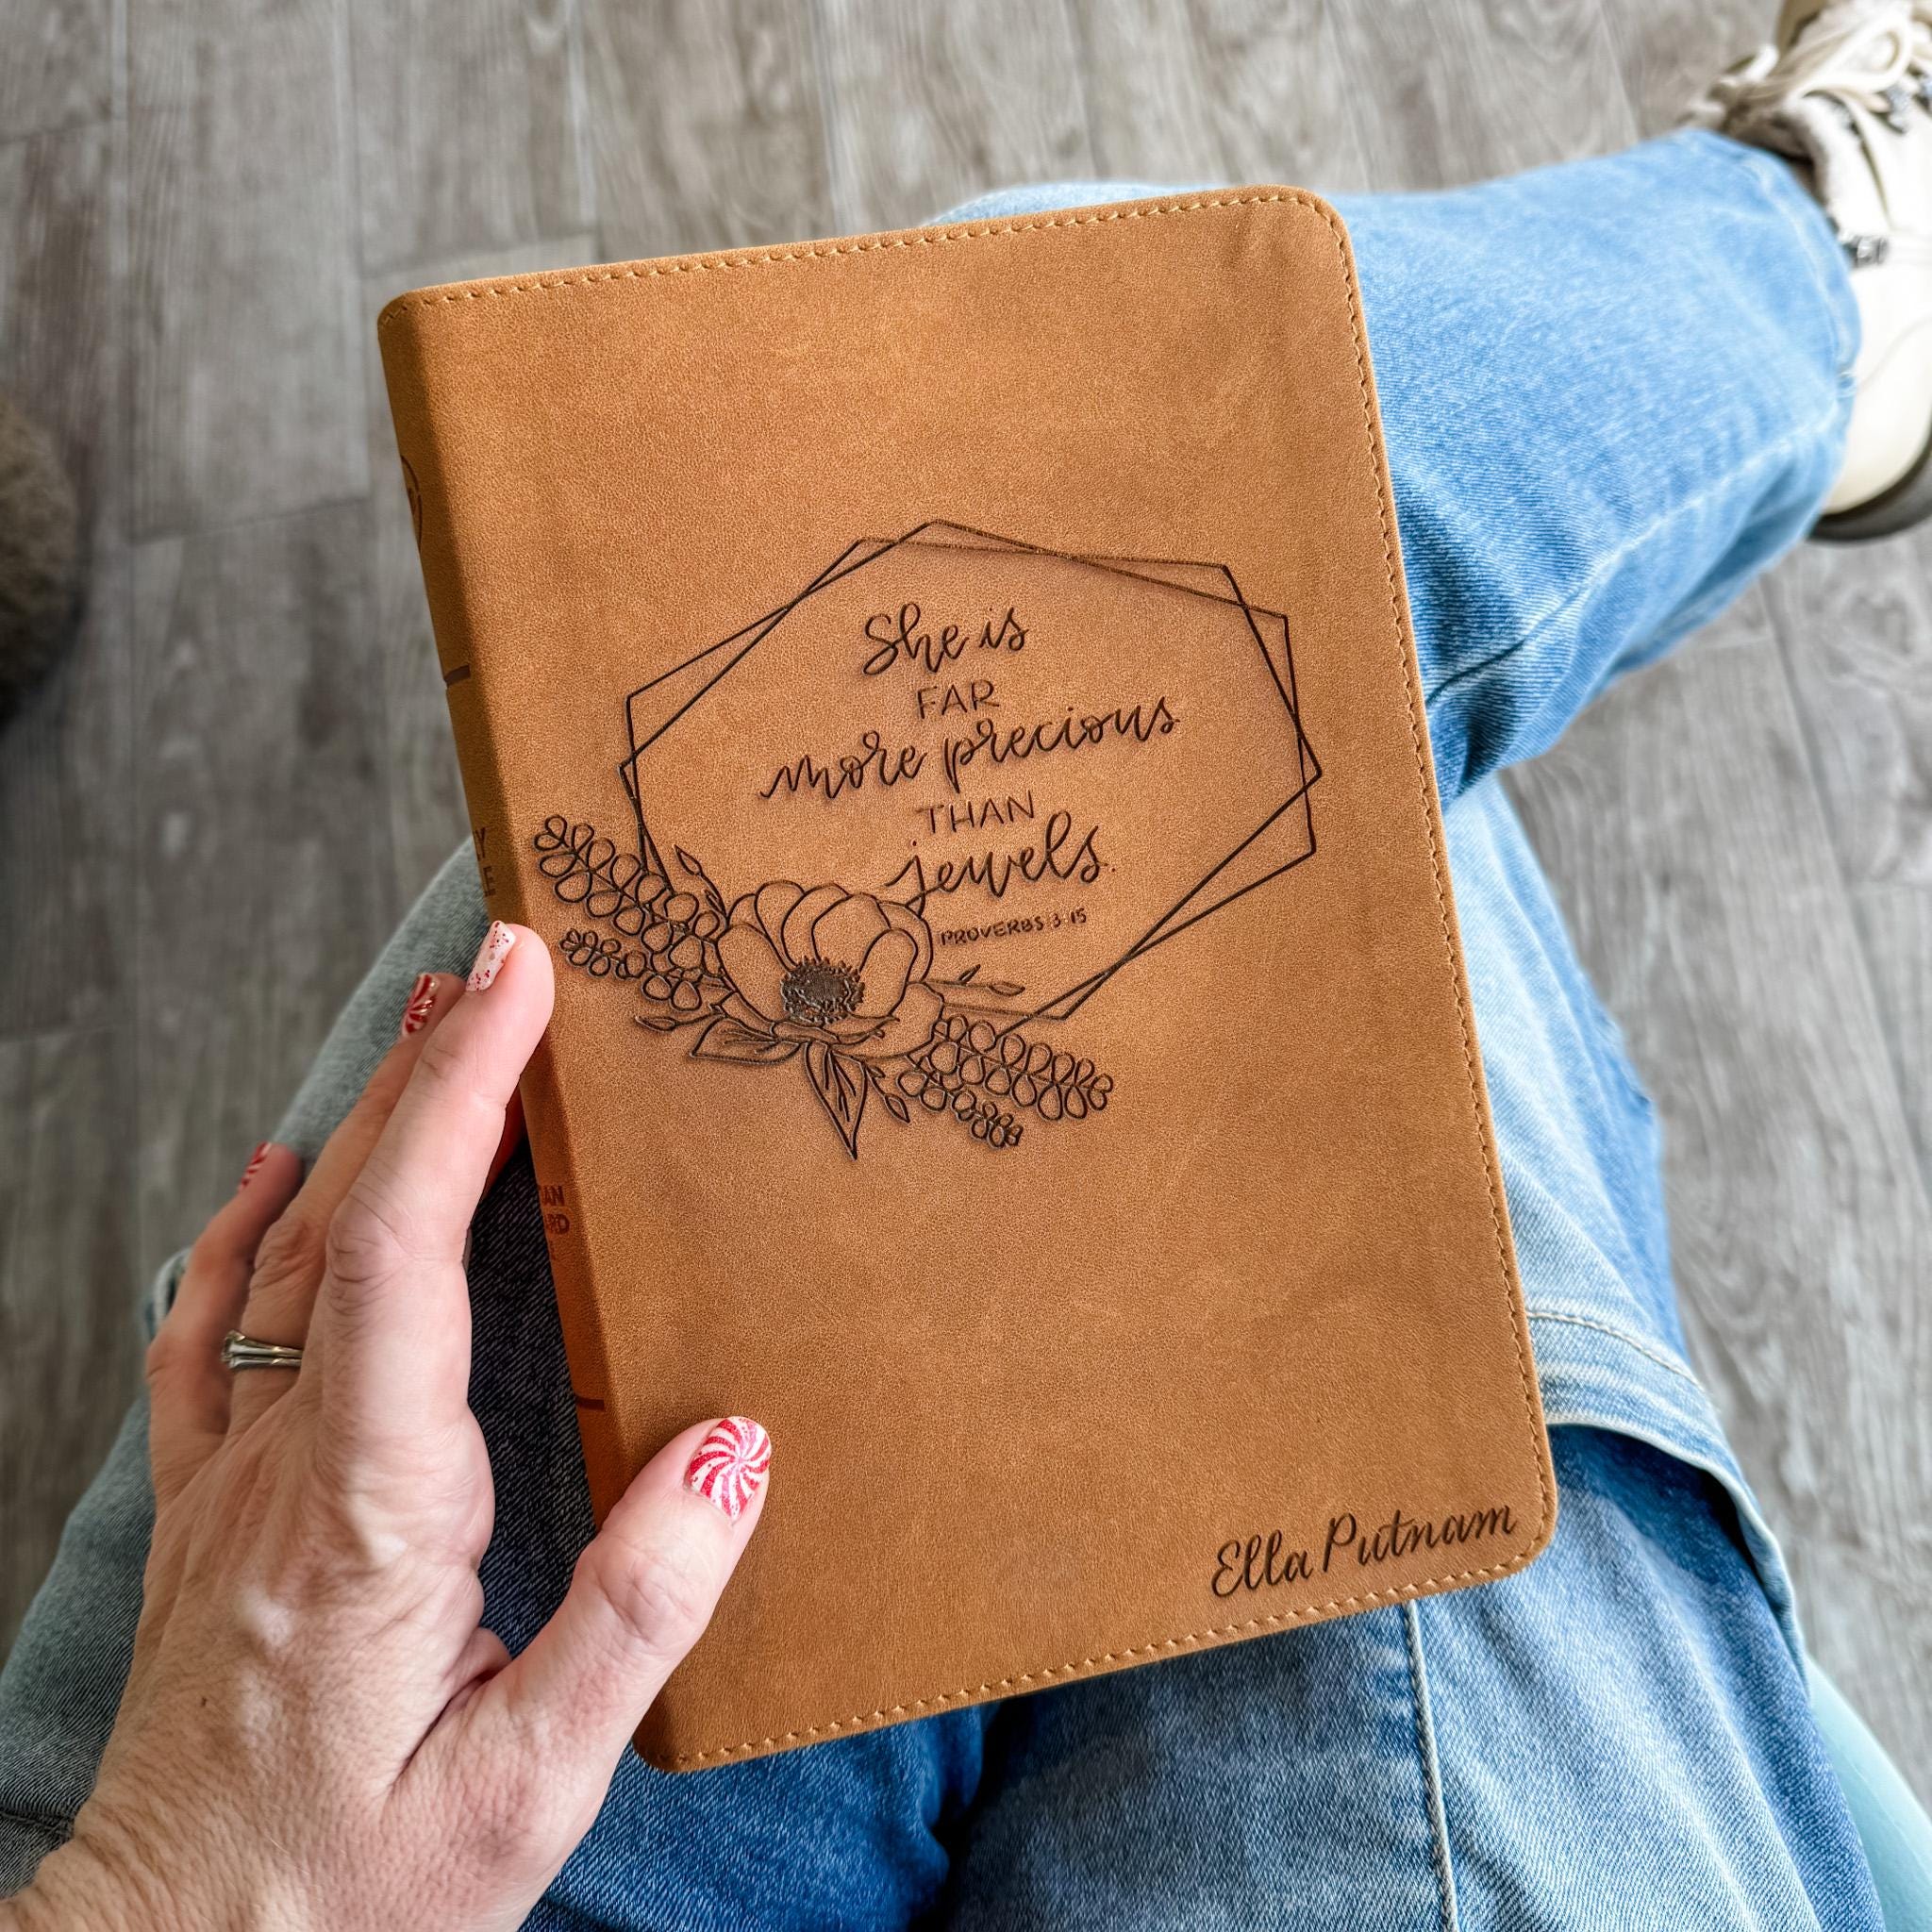 She is
FAR
more precious
THAN
jewels.
PROVERBS 3:15
Ella Putnam